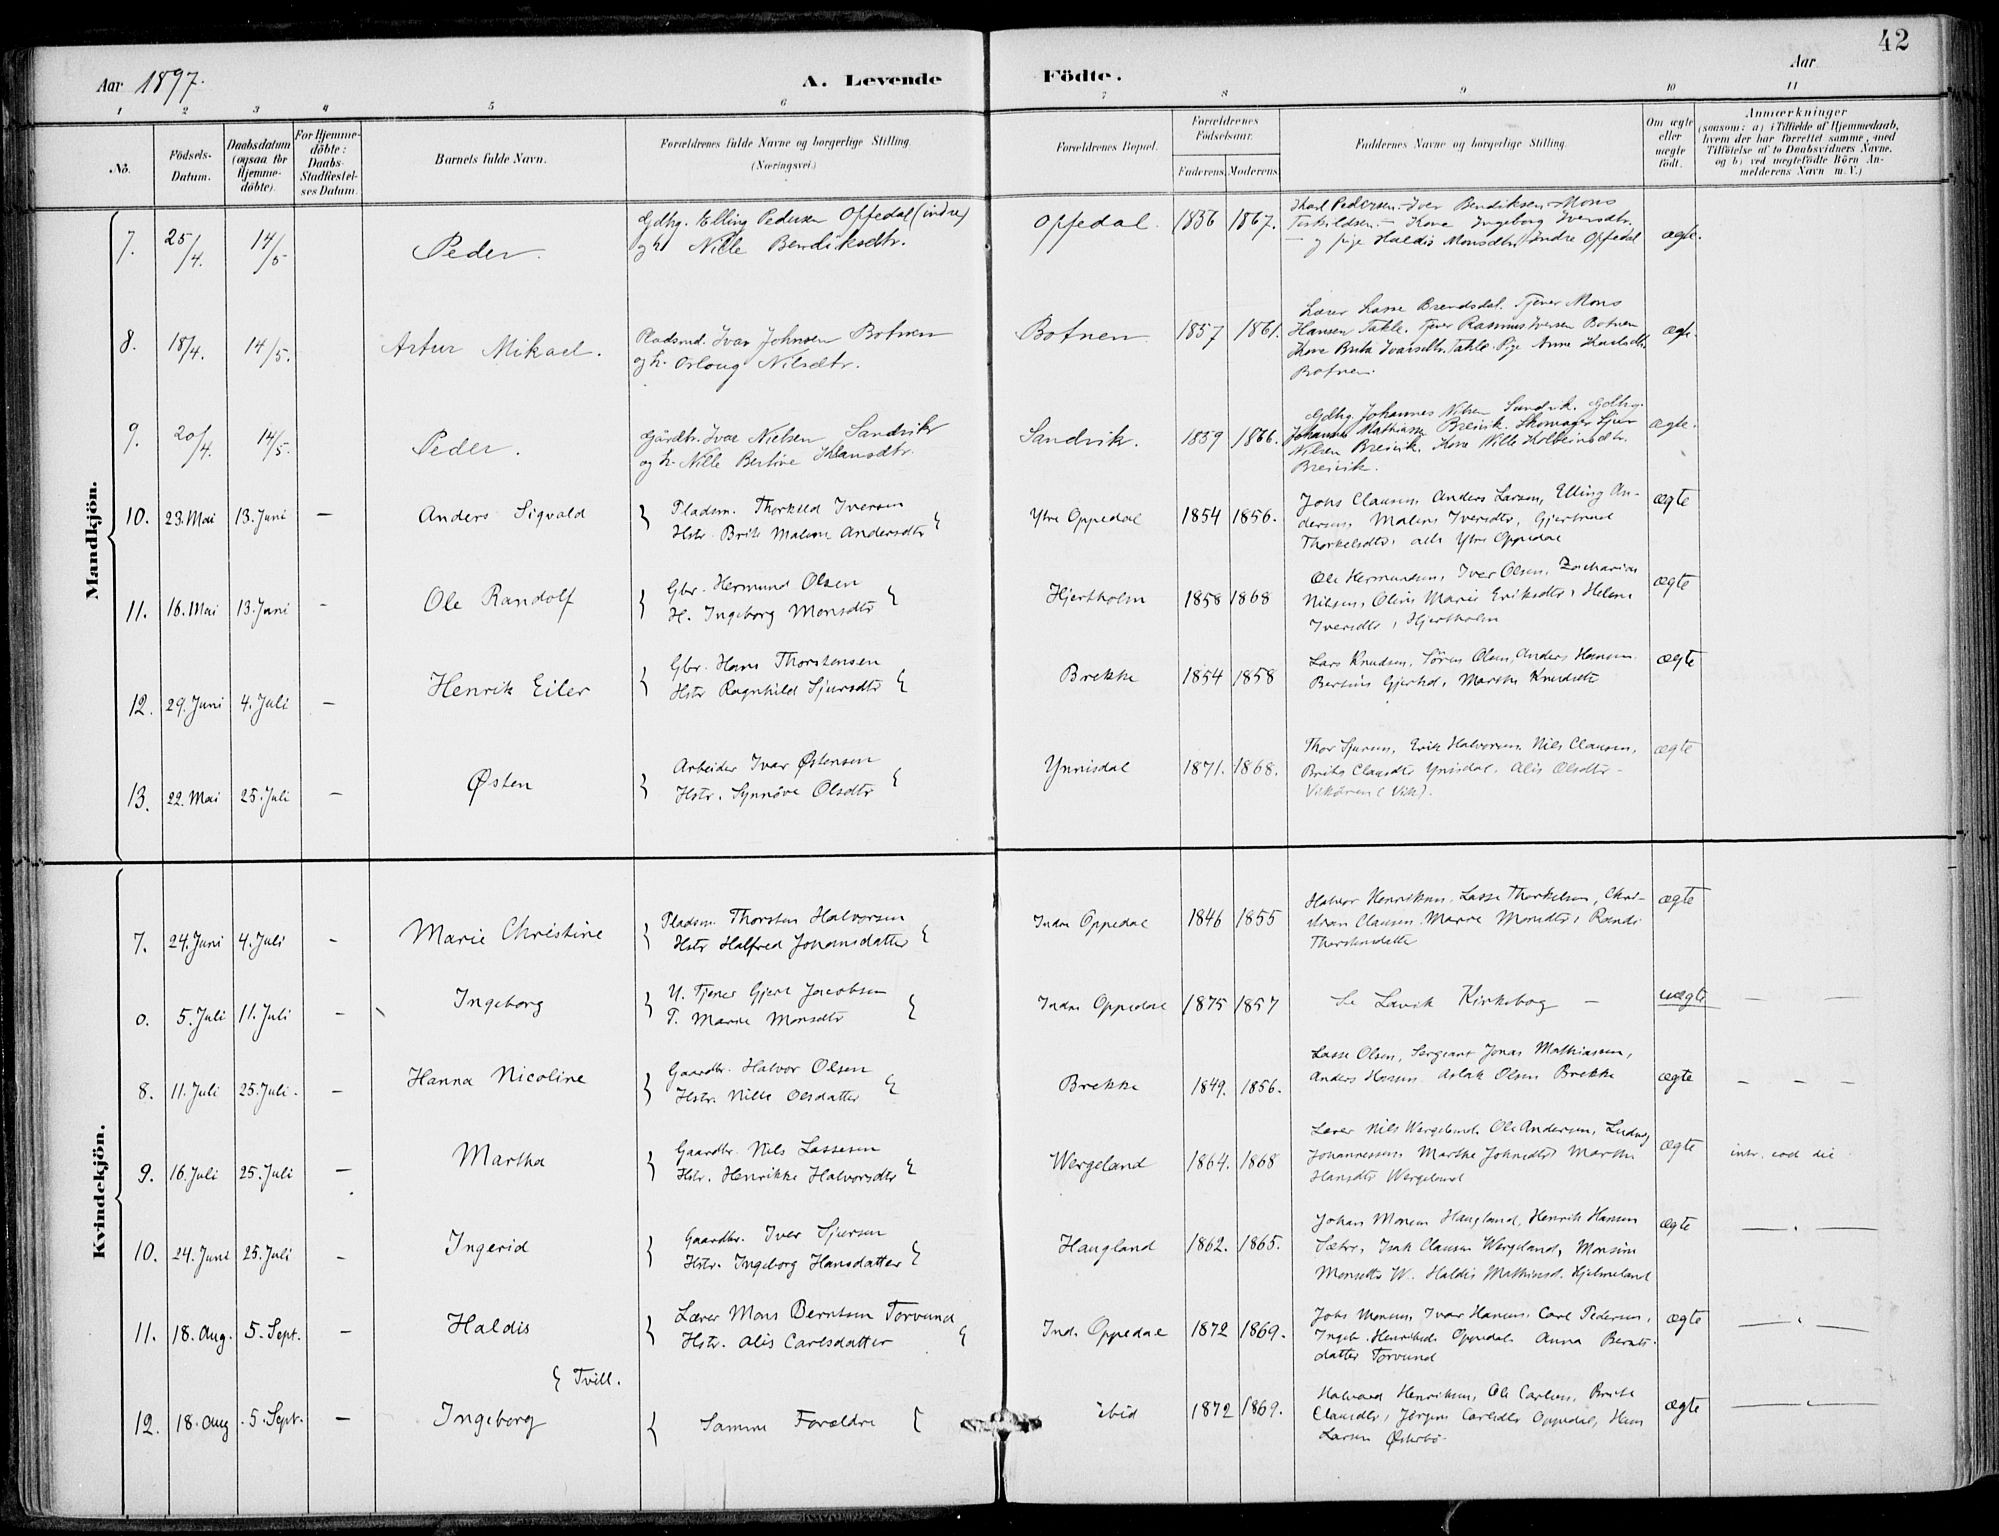 42
Aar 1897.
A. Levende Födte.
Aar
1 2 3 4 5 6 7 8 9 10 11
No.
Födsels-
Datum.
Daabsdatum
(ogsaa for
Hjemme-
döbte).
For Hjemme-
döbte:
Daabs-
Stadfæstel-
ses Datum.
Barnets fulde Navn.
Forældrenes fulde Navne og borgerlige Stilling.
(Næringsvei.)
Forældrenes Bopæl.
Forældrenes
Födselsaar.
Faderens. Moderens.
Faddernes Navne og borgerlige Stilling.
Om ægte
eller
uægte
födt.
Anmærkninger
(saasom: a) i Tilfælde af Hjemmedaab,
hvem der har forrettet samme, med
Tilföielse af to Daabsvidners Navne,
og b) ved uægtefödte Börn An-
melderens Navn m. V.)
Mandkjön.
7. 25/4. 14/5 Peder.
Gdbg. Elling Pedersen Oppedal (indre)
og h. Nille Bendiksdtr.
Oppedal. 1836 1867.
Karl Pedersen. Iver Bendiksen. Mons
Terkildsen. Kone Ingeborg Iversdtr.
og pige Haldis Monsdtr. Indre Oppedal
ægte.
8. 18/4. 14/5. Artur Mikael.
Pladsmd. Ivar Johnsen Botnen
og h. Orloug Nilsdtr.
Botnen 1857 1861.
Lærer Lasse Brendsdal. Tjener Mons
Hansen Takle. Tjener Rasmus Iversen Botnen
Kone Brita Ivarsdtr. Takle. Pige Anne Karlsdtr.
Botnen.
ægte.
9. 20/4. 14/5. Peder.
Gårdbr. Ivar Nielsen Sandvik
og h. Nille Bertine Hansdtr.
Sandvik. 1859 1866.
Gdbg. Johannes Nilsen Sandvik. Gdbg.
Johannes Mathiasse Breivik. Skomager Sjur
Nilsen Breivik. Kone Nille Kolbeinsdtr.
Breivik.
ægte.
10. 23. Mai 13. Juni — Anders Sigvald
Pladsm. Thorkild Iversen
Hstr. Brite Malene Andersdtr
Ytre Oppedal 1854 1856.
Johs Clausen, Anders Larsen, Elling An-
dersen, Malene Iversdtr, Gjertrud
Thorkelsdtr, alle Ytre Oppedal
ægte
11. 16. Mai 13. Juni — Ole Randolf
Gbr. Hermund Olsen
H. Ingeborg Monsdtr
Hjertholm 1858 1868
Ole Hermundsen, Iver Olsen, Zacharias
Nilsen, Oline Marie Eriksdtr, Helene
Iversdtr, Hjertholm
ægte
12. 29. Juni 4. Juli — Henrik Eiler
Gbr. Hans Thorstensen
Hstr Ragnhild Sjursdtr
Brekke 1854 1858
Lars Knudsen, Søren Olsen, Anders Hansen
Bertine Gjerhd, Marthe Knudsdtr
ægte
13. 22. Mai 25. Juli — Østen
Arbeider Ivar Østensen
Hstr. Synnöve Olsdtr
Ynnisdal 1871. 1868.
Thor Sjursen, Erik Halvorsen, Nils Clausen,
Brite Clausdtr Ynisdal. Alis Olsdtr
Vikören (Vik).
ægte
Kvindekjön.
7. 24. Juni 4. Juli — Marie Christine
Pladsm. Thorsten Halvorsen
Hstr Halfred Johansdatter
Indre Oppedal 1846 1855
Halvor Henriksen, Lasse Thorkelsen, Chri-
stian Clausen, Marie Monsdtr, Randi
Thorstensdatter
ægte
0. 5. Juli 11. Juli — Ingeborg
U. Tjener Gjert Jacobsen
P. Marie Monsdtr
Indre Oppedal 1875 1857
Se Lavik Kirkebog —
uægte — —
8. 11. Juli 25. Juli. — Hanna Nicoline
Gaardbr. Halvor Olsen
Hstr. Nille Olsdatter
Brekke 1849. 1856.
Lasse Olsen, Sergeant Jonas Mathiassen,
Anders Hansen Aslak Olsen Brekke
ægte — — —
9. 16. Juli 25. Juli — Martha
Gaardbr. Nils Lassesen
Hstr. Henrikke Halvorsdtr
Wergeland 1864. 1868
Lærer Nils Wergeland. Ole Andersen, Ludvig
Johannessen, Marthe Johnsdtr Marthe
Hansdtr Wergeland
ægte intr. eod die
10. 24. Juni 25. Juli — Ingerid
Gaardbr. Iver Sjursen
Hstr. Ingeborg Hansdatter
Haugland 1862. 1865.
Johan Monsen Haugland, Henrik Hansen
Sætre, Isak Clausen Wergeland, Monsine
Monsdtr W. Haldis Mathiasd. Hjelmeland
ægte — " —
11. 18. Aug. 5. Sept. — Haldis
Lærer Mons Berntsen Torvund
Hstr. Alis Carlsdatter
Ind. Oppedal 1872 1869.
Johs Monsen, Ivar Hansen, Carl Pedersen,
Ingeb. Henriksd. Oppedal. Anna Bernts-
datter Torvund
ægte — " —
Tvill.
12. 18. Aug 5. Sept. — Ingeborg
Samme Forældre
ibid 1872 1869.
Halvard Henriksen, Ole Carlsen, Brite
Clausdtr, Jørgine Carlsdtr Oppedal, Hans
Larsen Østerbø
ægte — " —